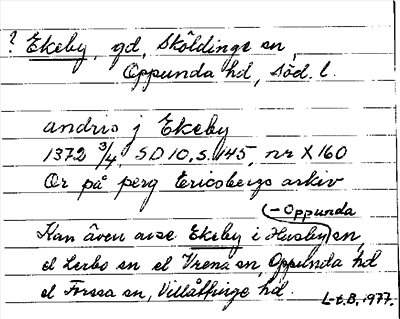 ? Ekeby, gd, Sköldinge sn,
Oppunda hd, Söd. l.
andris j Ekeby
1372 3/4, SD 10, s. 145, nr X 160
Or på perg Ericsbergs arkiv
(-Oppunda
Kan även avse Ekeby i Husby) sn,
el Lerbo sn el Vrena sn, Oppunda hd
el Forssa sn, Villåttinge hd.
L-E.B, 1977.